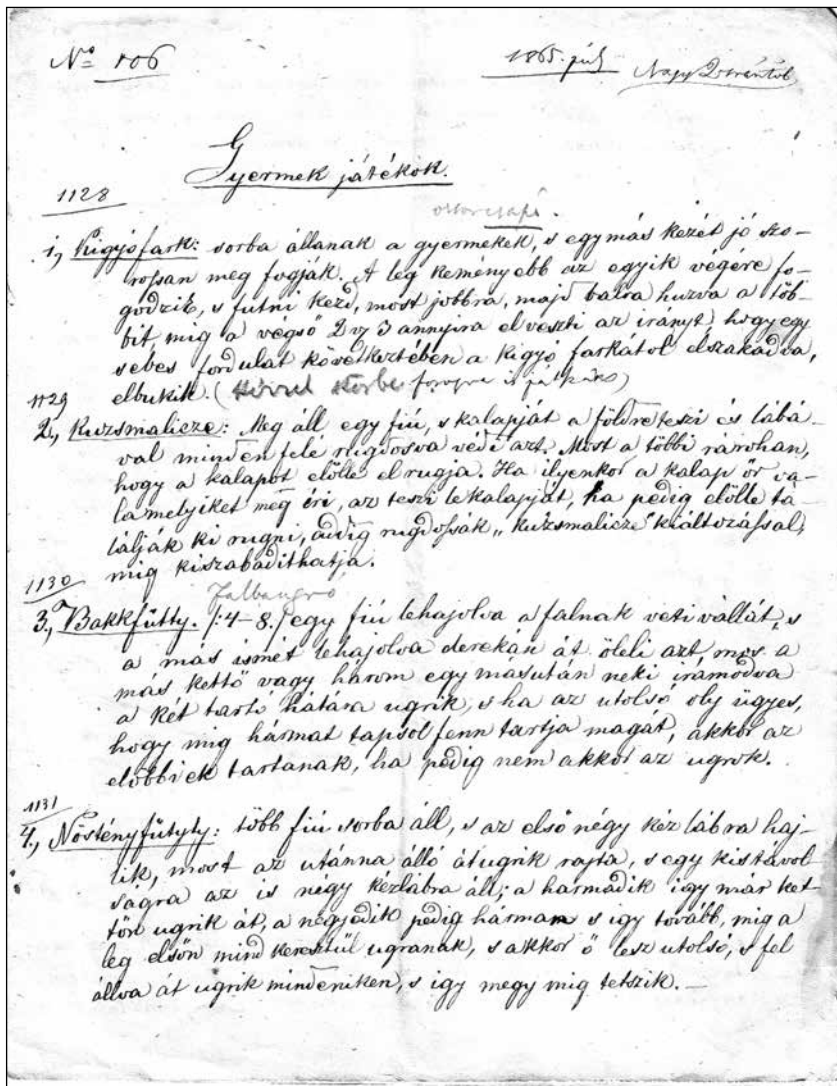 No 106
1865. júl
Gyermek játékok.
1128
ostorcsapó.
1, Kigyófark: sorba állanak a gyermekek, s egymás kezét jó szo-
rossan meg fogják. A leg keményebb az egyik végére fo-
gódzik, s futni kezd, most jobbra, majd balra huzva a töb-
bit mig a végső 2 vy 3 annyira el veszti az irányt, hogy egy
sebes fordulat következtében a kigyó farkától elszakadva,
elbukik. (
1129
2., Kuzsmalicze: Meg áll egy fiú, s kalapját a földre teszi és lábá-
val minden felé rugdosva védi azt. Most a többi rárohan,
hogy a kalapot elölle el rugja. Ha ilyenkor a kalap őr va-
lamelyiket meg éri, az teszi le kalapját, ha pedig elölle ta-
lálják ki rugni, addig rugdossák „kuzsmalicze" kiáltozással,
mig kiszabadithatja.
1130
3., Bakkfütty. /:4-8./ egy fiú lehajolva a falnak veti vállát, s
a más ismét lehajolva derekán át öleli azt, mos a
más kettő vagy három egymásután neki irámodva
a két tartó hátára ugrik, s ha az utolsó oly ügyes,
hogy mig hármat tapsol fenn tartja magát, akkor az
előbbiek tartanak, ha pedig nem akkor az ugrók.
1131
4., Nőstényfütyty: több fiú sorba áll, s az első négy kéz lábra haj-
lik, most az utánna álló átugrik rajta, s egy kis távol
ságra az is négy kézlábra áll; a harmadik igy már ket-
tőn ugrik át, a negyedik pedig hármam s igy tovább, mig a
leg elsőn mind keresztül ugranak, s akkor ő lesz utolsó, s fel
állva át ugrik mindeniken, s igy megy mig tetszik. —